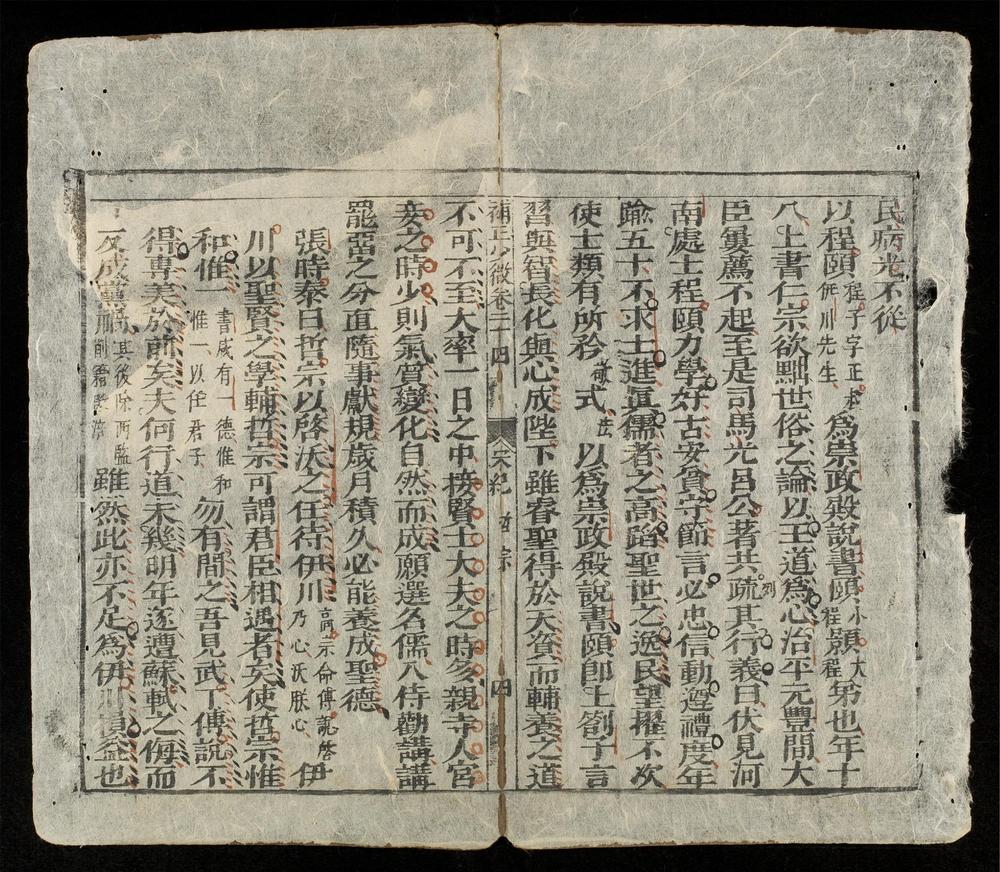 民病光不從
以程頤程子字正叔伊川先生爲崇政殿說書頤小程顥大程弟也年十
八上書仁宗欲黜世俗之論以王道爲心治平元豐間大
臣屢薦不起至是司馬光呂公著共疏列其行義曰伏見河
南處士程頤力學好古安貧守節言必忠信動遵禮度年
踰五十不求士進眞儒者之高蹈聖世之逸民望擢不次
使士類有所矜式以爲崇政殿說書頤卽上劄子言
習與智長化與心成陛下雖睿聖得於天資而輔養之道
補正少微卷二十四 宋紀 哲宗 四
不可不至大率一日之中接賢士大夫之時多親寺人宮
妾之時少則氣質變化自然而成願選名儒入侍勸講講
罷亞之分直隨事獻規歲月積久必能養成聖德
張時泰曰哲宗以啓沃之任待伊川高宗命傅說啓乃心沃朕心伊
川以聖賢之學輔哲宗可謂君臣相遇者矣使哲宗惟
和惟一書咸有一德惟和惟一以任君子勿有間之吾見武丁傅說不
得專美於前矣夫何行道未幾明年遂遭蘇軾之侮而
反成黨禍其後除西監削籍雖然此亦不足爲伊川損益也